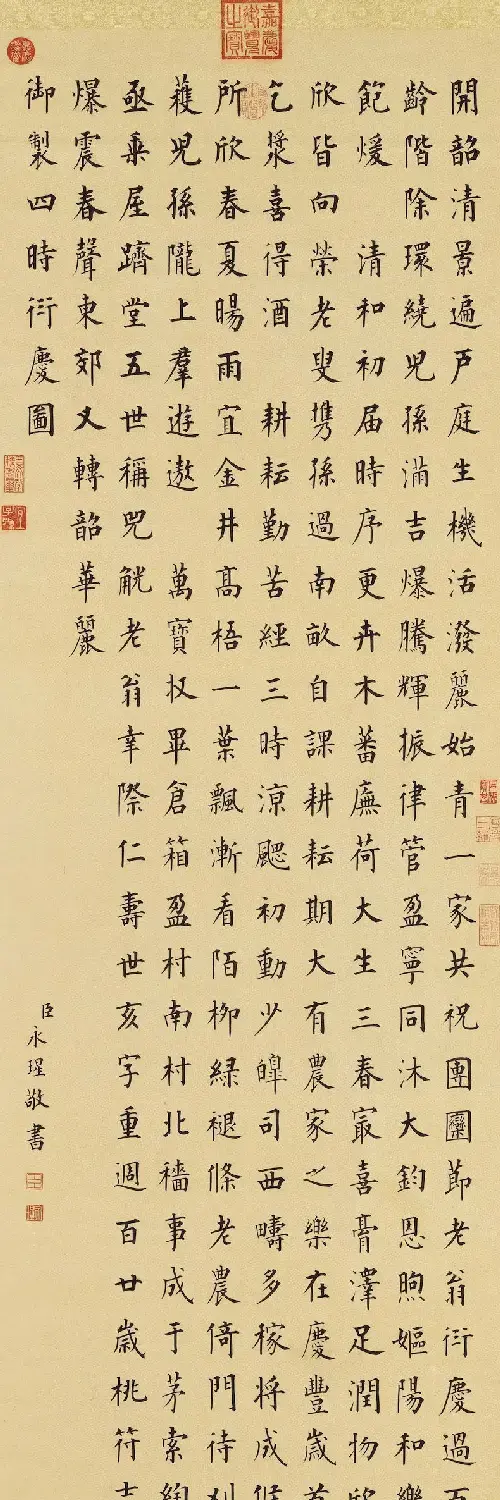 嘉慶御覽之寶
開韶清景遍戸庭生機活潑麗始青一家共祝團圞節老翁衍慶過百
齡階除環繞兒孫滿吉爆騰輝振律管盈寧同沐大鈞恩煦嫗陽和樂
飽煖 清和初届時序更卉木蕃廡荷大生三春冣喜膏澤足潤物
欣皆向榮老叟携孫過南畝自課耕耘期大有農家之樂在慶豐歲
乞漿喜得酒 耕耘勤苦經三時涼颸初動少皥司西疇多稼將成候
所欣春夏暘雨宜金井高梧一葉飄漸看陌柳緑褪條老農倚門待刈
穫兒孫隴上羣遊遨 萬寶収畢倉箱盈村南村北穡事成于茅索綯
亟乗屋躋堂五世稱兕觥老翁幸際仁壽世亥字重週百廿歲桃符吉
爆震春聲東郊又轉韶華麗
御製四時衍慶圖
臣永瑆敬書